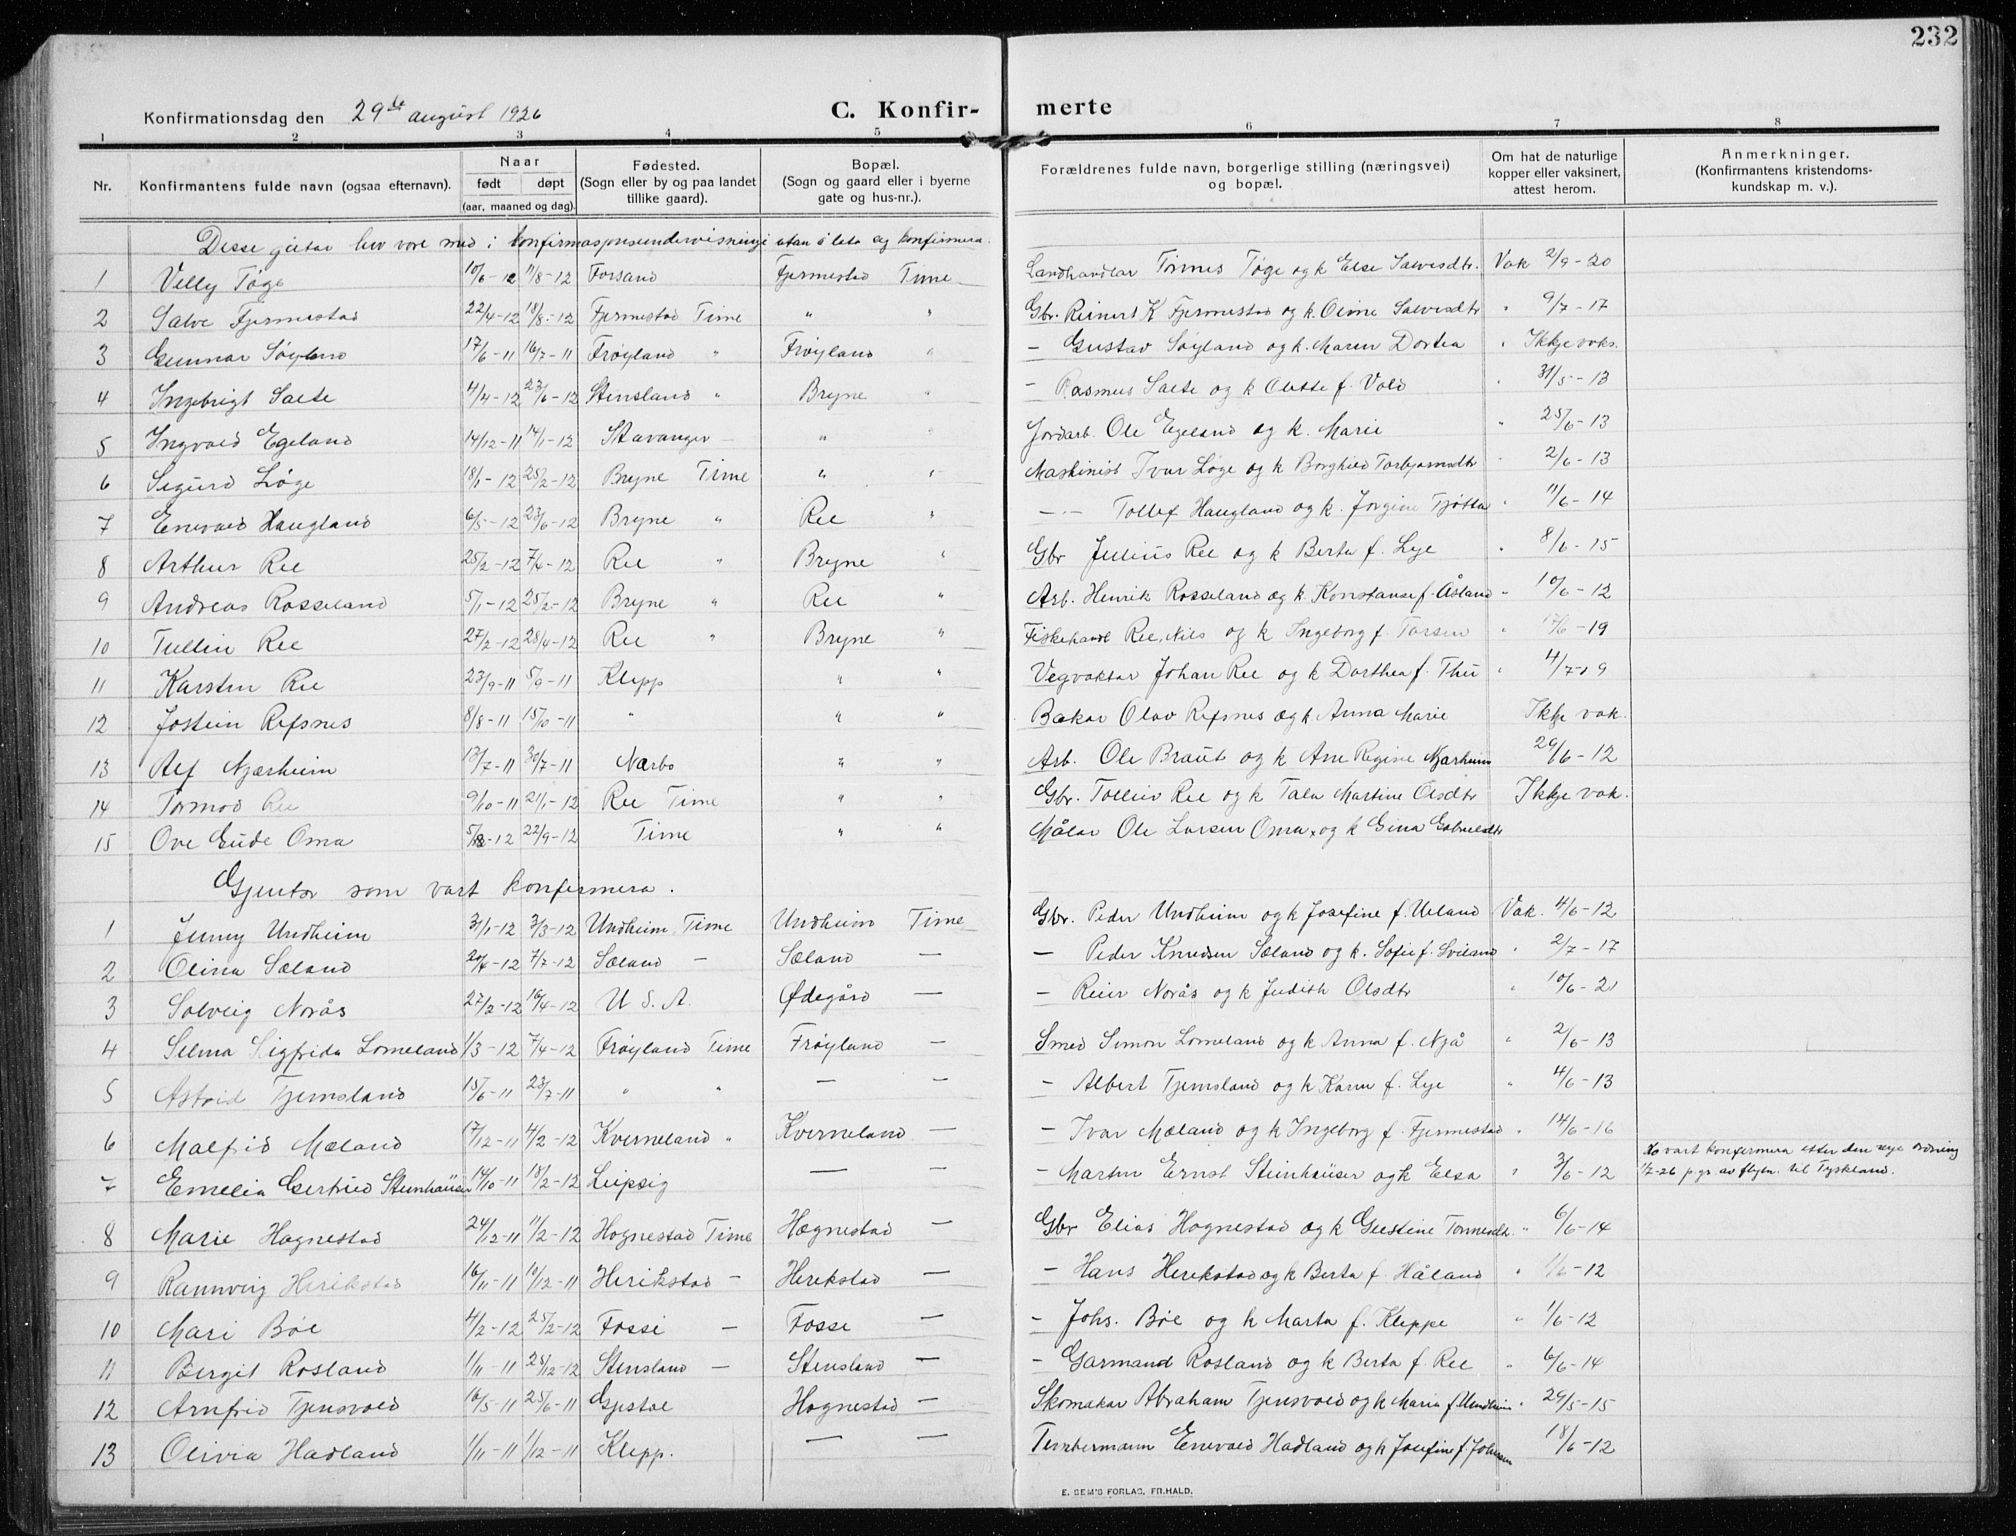 232
Konfirmationsdag den 29de august 1926 C. Konfir- merte
1 2 3 4 5 6 7 8
Nr. Konfirmantens fulde navn (ogsaa efternavn). Naar født døpt (aar, maaned og dag). Fødested. (Sogn eller by og paa landet tillike gaard). Bopæl. (Sogn og gaard eller i byerne gate og hus-nr.). Forældrenes fulde navn, borgerlige stilling (næringsvei) og bopæl. Om hat de naturlige kopper eller vaksinert, attest herom. Anmerkninger. (Konfirmantens kristendoms- kundskap m. v.).
Desse gutar hev vore med i konfirmasjonsundervisningi utan å lata seg konfirmera.
1 Velly Tøge 10/6-12 11/8-12 Forsand Fjermestad Time Landhandlar Tønnes Tøge og k Else Salvesdtr. Vak 2/9-20
2 Salve Fjermestad 22/4-12 18/8-12 Fjermestad Time " " Gbr. Reinert K Fjermestad og k. Oline Salvesdtr " 9/7-17
3 Gunnar Søyland 17/6-11 16/7-11 Frøyland " Frøyland " – Gustav Søyland og k. Maren Dortea " Ikkje vaks.
4 Ingebrigt Saete 4/4-12 23/6-12 Stensland " Bryne " – Rasmus Saete og k Olette f. Vold " 31/5-13
5 Ingvald Egeland 14/12-11 14/1-12 Stavanger – " " Jordarb. Ole Egeland og k. Marie " 25/6-13
6 Sigurd Løge 18/1-12 25/2-12 Bryne Time " " Maskinist Ivar Løge og k Borghild Torbjørnsdtr " 2/6-13
7 Enevald Haugland 6/5-12 23/6-12 Bryne " Ree " – – Tollef Haugland og k. Jorgine Tjøtta " 11/6-14
8 Arthur Ree 25/2-12 7/4-12 Ree " Bryne " Gbr Julius Ree og k Berta f. Lye " 8/6-15
9 Andreas Rosseland 5/1-12 25/2-12 Bryne " Ree " Arb. Henrik Rosseland og k Konstanse f. Åsland " 10/6-12
10 Tullin Ree 27/2-12 28/4-12 Ree " Bryne " Fiskehandl Ree, Nils og k Ingeborg f. Torsen " 17/6-19
11 Karsten Ree 23/9-11 5/9-11 Klepp " " Vegvaktar Johan Ree og k Dorthea f. Thu " 4/7-19
12 Jostein Refsnes 8/8-11 15/10-11 " " " Bakar Olav Refsnes og k Anna Marie Ikkje vak.
13 Alf Njærheim 13/7-11 30/7-11 Nærbø " " Arb. Ole Braut og k Ane Regine Njærheim 26/6-12
14 Tormod Ree 9/10-11 21/1-12 Ree Time " " Gbr. Tolleiv Ree og k Tala Martine Olsdtr Ikkje vak.
15 Ove Eude Oma 5/8-12 22/9-12 Time " " Målar Ole Larsen Oma, og k Gina Gabrielsdtr
Gjentor som vart konfirmera.
1 Jenny Undheim 31/1-12 3/3-12 Undheim, Time Undheim Time Gbr. Peder Undheim og k Josefine f. Ueland Vak. 4/6-12
2 Olina Sæland 20/4-12 7/7-12 Sæland – Sæland – – Peder Knudsen Sæland og k. Sofie f. Sviland " 2/7-17
3 Solveig Norås 27/2-12 16/4-12 U. S. A. Ødegård – – Reier Norås og k Judith Olsdtr " 10/6-21
4 Selma Sigfrida Lomeland 1/3-12 7/4-12 Frøyland Time Frøyland – Smed Simon Lomeland og k Anna f. Njå " 2/6-13
5 Astrid Tjemsland 15/6-11 23/7-11 " " – – – Albert Tjemsland og k Karen f. Lye " 4/6-13
6 Malfrid Mæland 17/12-11 4/2-12 Kverneland " Kverneland – – Ivar Mæland og k Ingeborg f. Fjermestad " 14/6-16
7 Emelia Gertrud Steinhäuser 14/10-11 18/2-12 Leipzig – – – Marten Ernst Steinhäuser og k Elsa " 3/6-12 Ho vart konfirmera etter den nye ordning 1/7-26 p.gr. av flytn. til Tyskland.
8 Marie Hognestad 24/12-11 11/2-12 Hognestad Time Hognestad – Gbr Elias Hognestad og k Gustine Tønnesdtr. " 6/6-14
9 Rannveig Herikstad 16/11-11 10/12-11 Herikstad – Herikstad – – Hans Herikstad og k Berta f. Håland " 1/6-12
10 Mari Bøe 4/2-12 25/2-12 Fosse – Fosse – – Johs. Bøe og k Marta f. Kleppe " 1/6-12
11 Bergit Rosland 1/11-11 25/12-12 Stensland – Stensland – – Garmand Rosland og k Berta f. Ree " 6/6-14
12 Arnfrid Tjensvold 16/5-11 25/6-11 Gjestal Hognestad – Skomakar Abraham Tjensvold og k Maria f Undheim " 29/5-15
13 Olivia Hadland 1/11-11 1/12-11 Klepp. – – Tømbermann Enevald Hadland og k Josefine f. Johnsen 18/6-12
E. SEM'S FORLAG, FR.HALD.